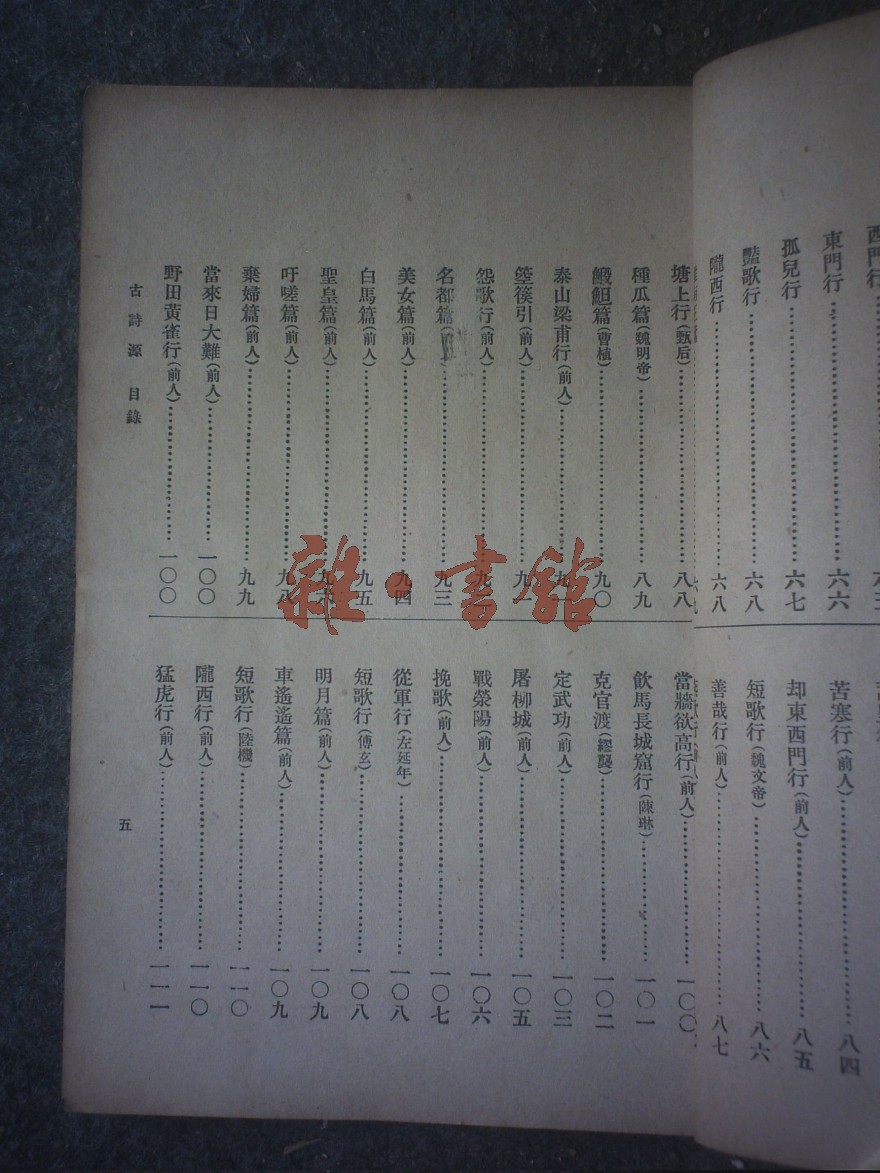 東門行……六六
孤兒行……六七
豔歌行……六八
隴西行……六八
苦塞行(前人)……八四
却東西門行(前人)……八五
短歌行(魏文帝)……八六
善哉行(前人)……八七
塘上行(甄后)……八八
種瓜篇(魏明帝)……八九
䱇䱉篇(曹植)……九〇
泰山梁甫行(前人)
箜篌引(前人)……九一
怨歌行(前人)
名都篇……九三
美女篇(前人)……九四
白馬篇(前人)……九五
聖皇篇(前人)
吁嗟篇(前人)……九八
棄婦篇(前人)……九九
當來日大難(前人)……一〇〇
野田黃雀行(前人)……一〇〇
當牆欲高行(前人)……一〇〇
飲馬長城窟行(陳琳)……一〇一
克官渡(繆襲)……一〇二
定武功(前人)……一〇三
屠柳城(前人)……一〇五
戰滎陽(前人)……一〇六
挽歌(前人)……一〇七
從軍行(左延年)……一〇八
短歌行(傅玄)……一〇八
明月篇(前人)……一〇九
車遙遙篇(前人)……一〇九
短歌行(陸機)……一一〇
隴西行(前人)……一一〇
猛虎行(前人)……一一一
古詩源 目錄
五
雜·書館